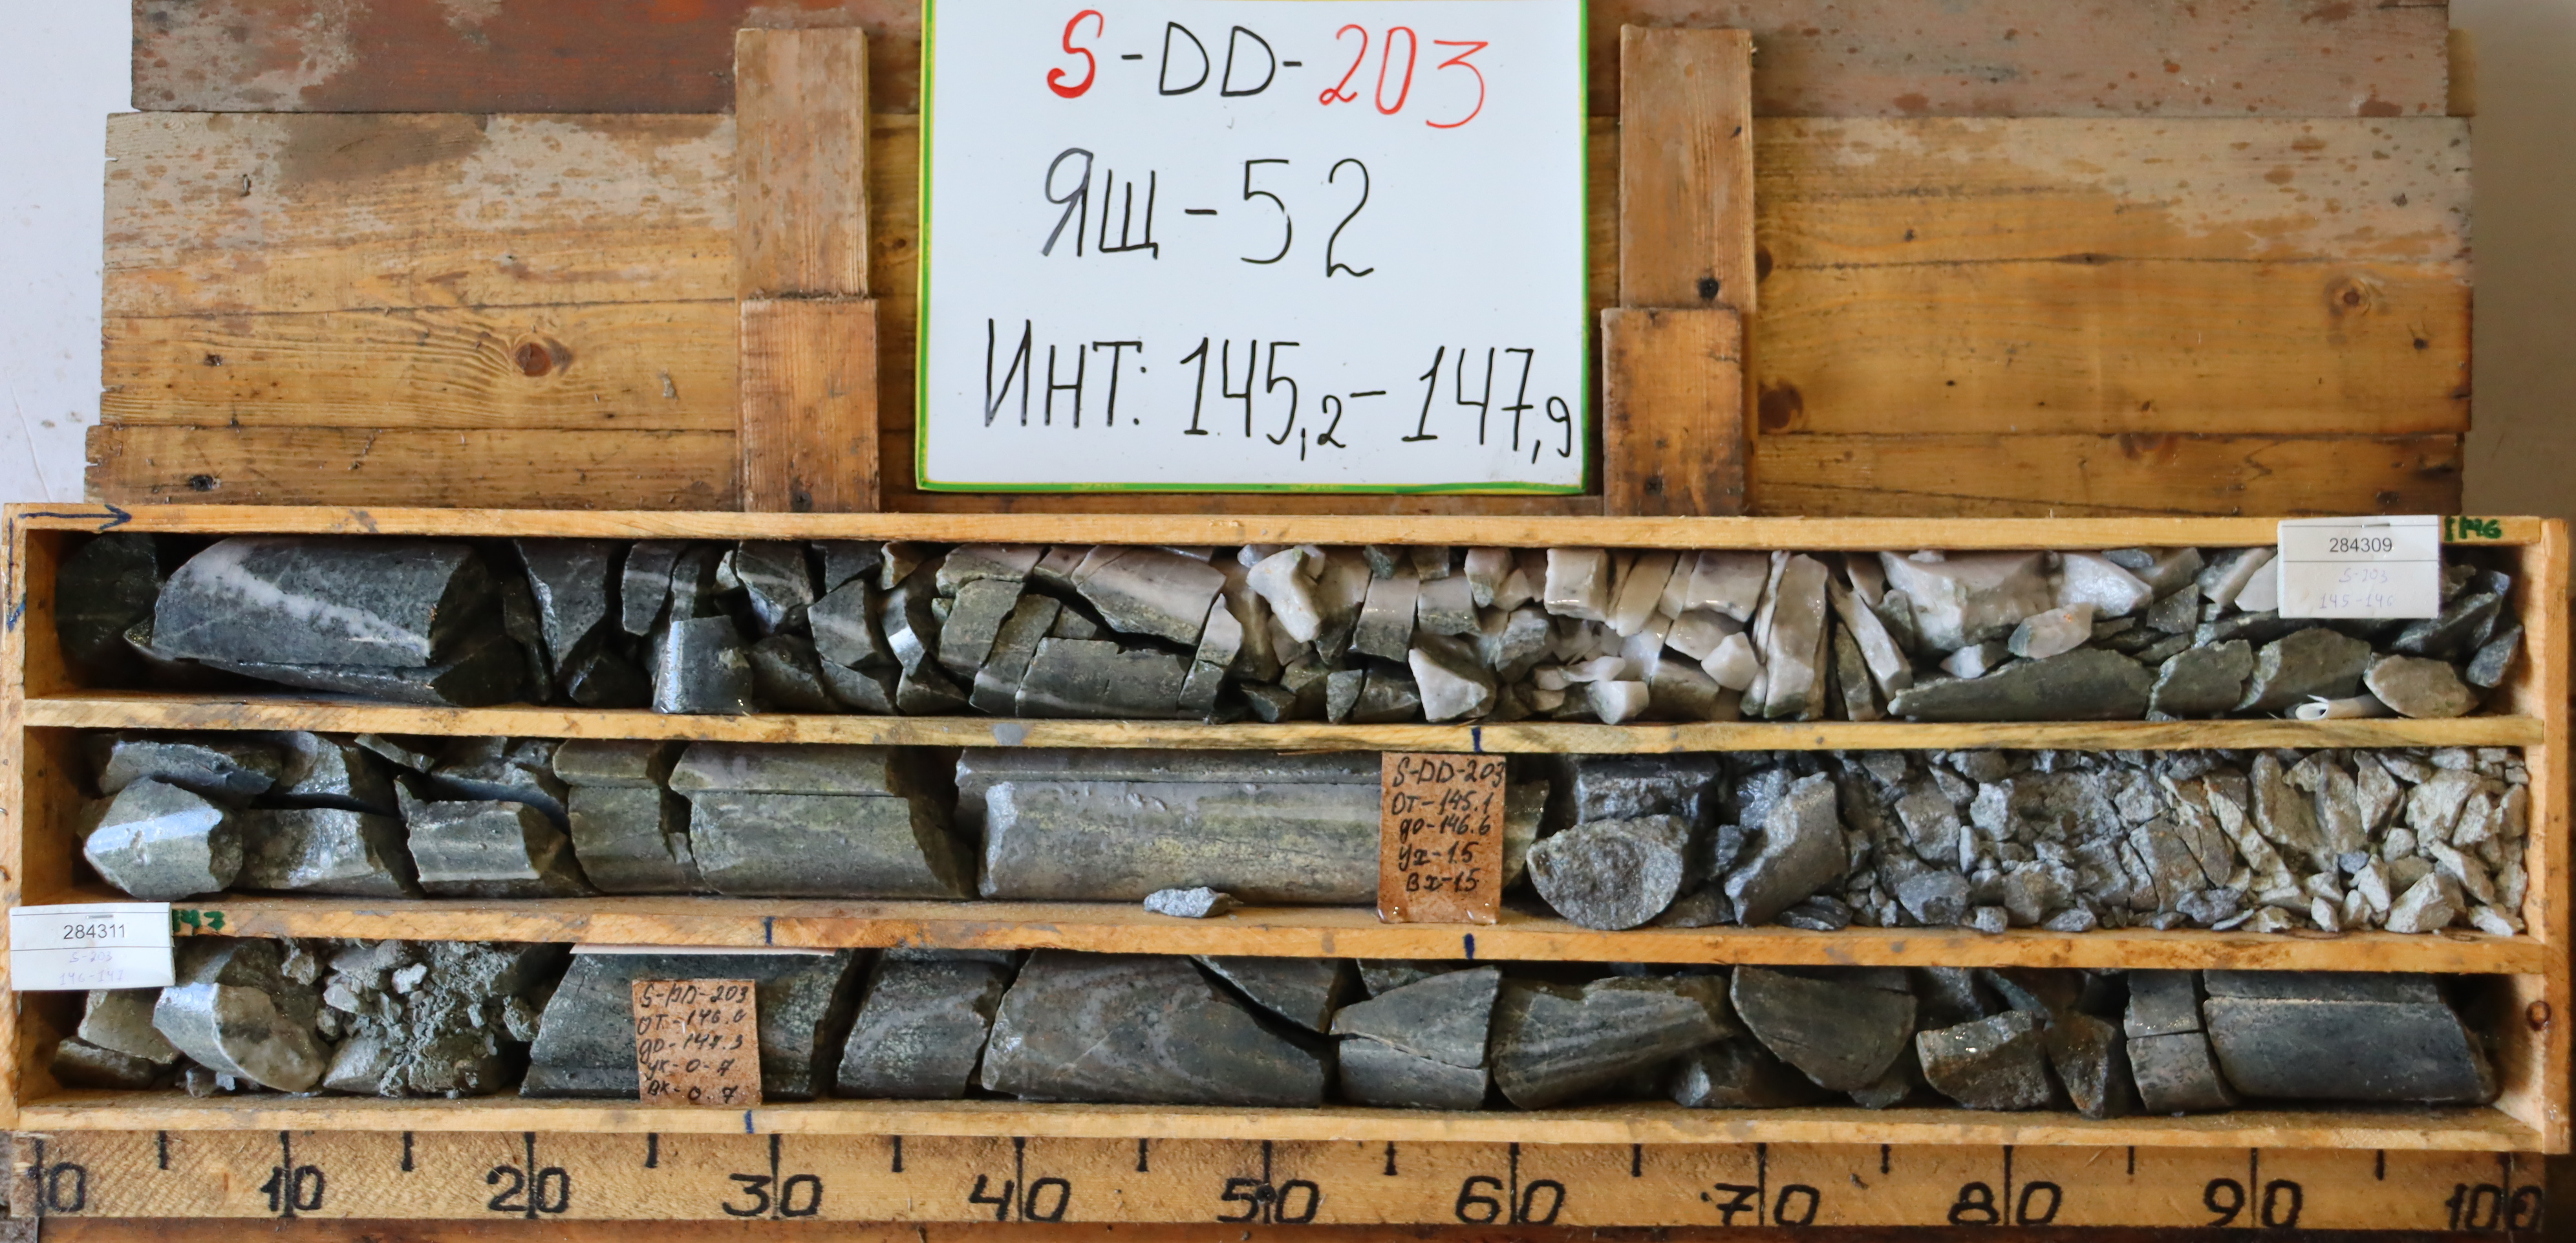 S-DD-203
ЯЩ-52
ИНТ: 145,2-147,9
146
284309
S-203
145-146
S-DD-203
от-145.1
до-146.6
ух-1.5
вх-1.5
147
284311
S-203
146-147
S-DD-203
от-146.6
до-147.3
ук-0-7
вк-0.7
0 10 20 30 40 50 60 70 80 90 100